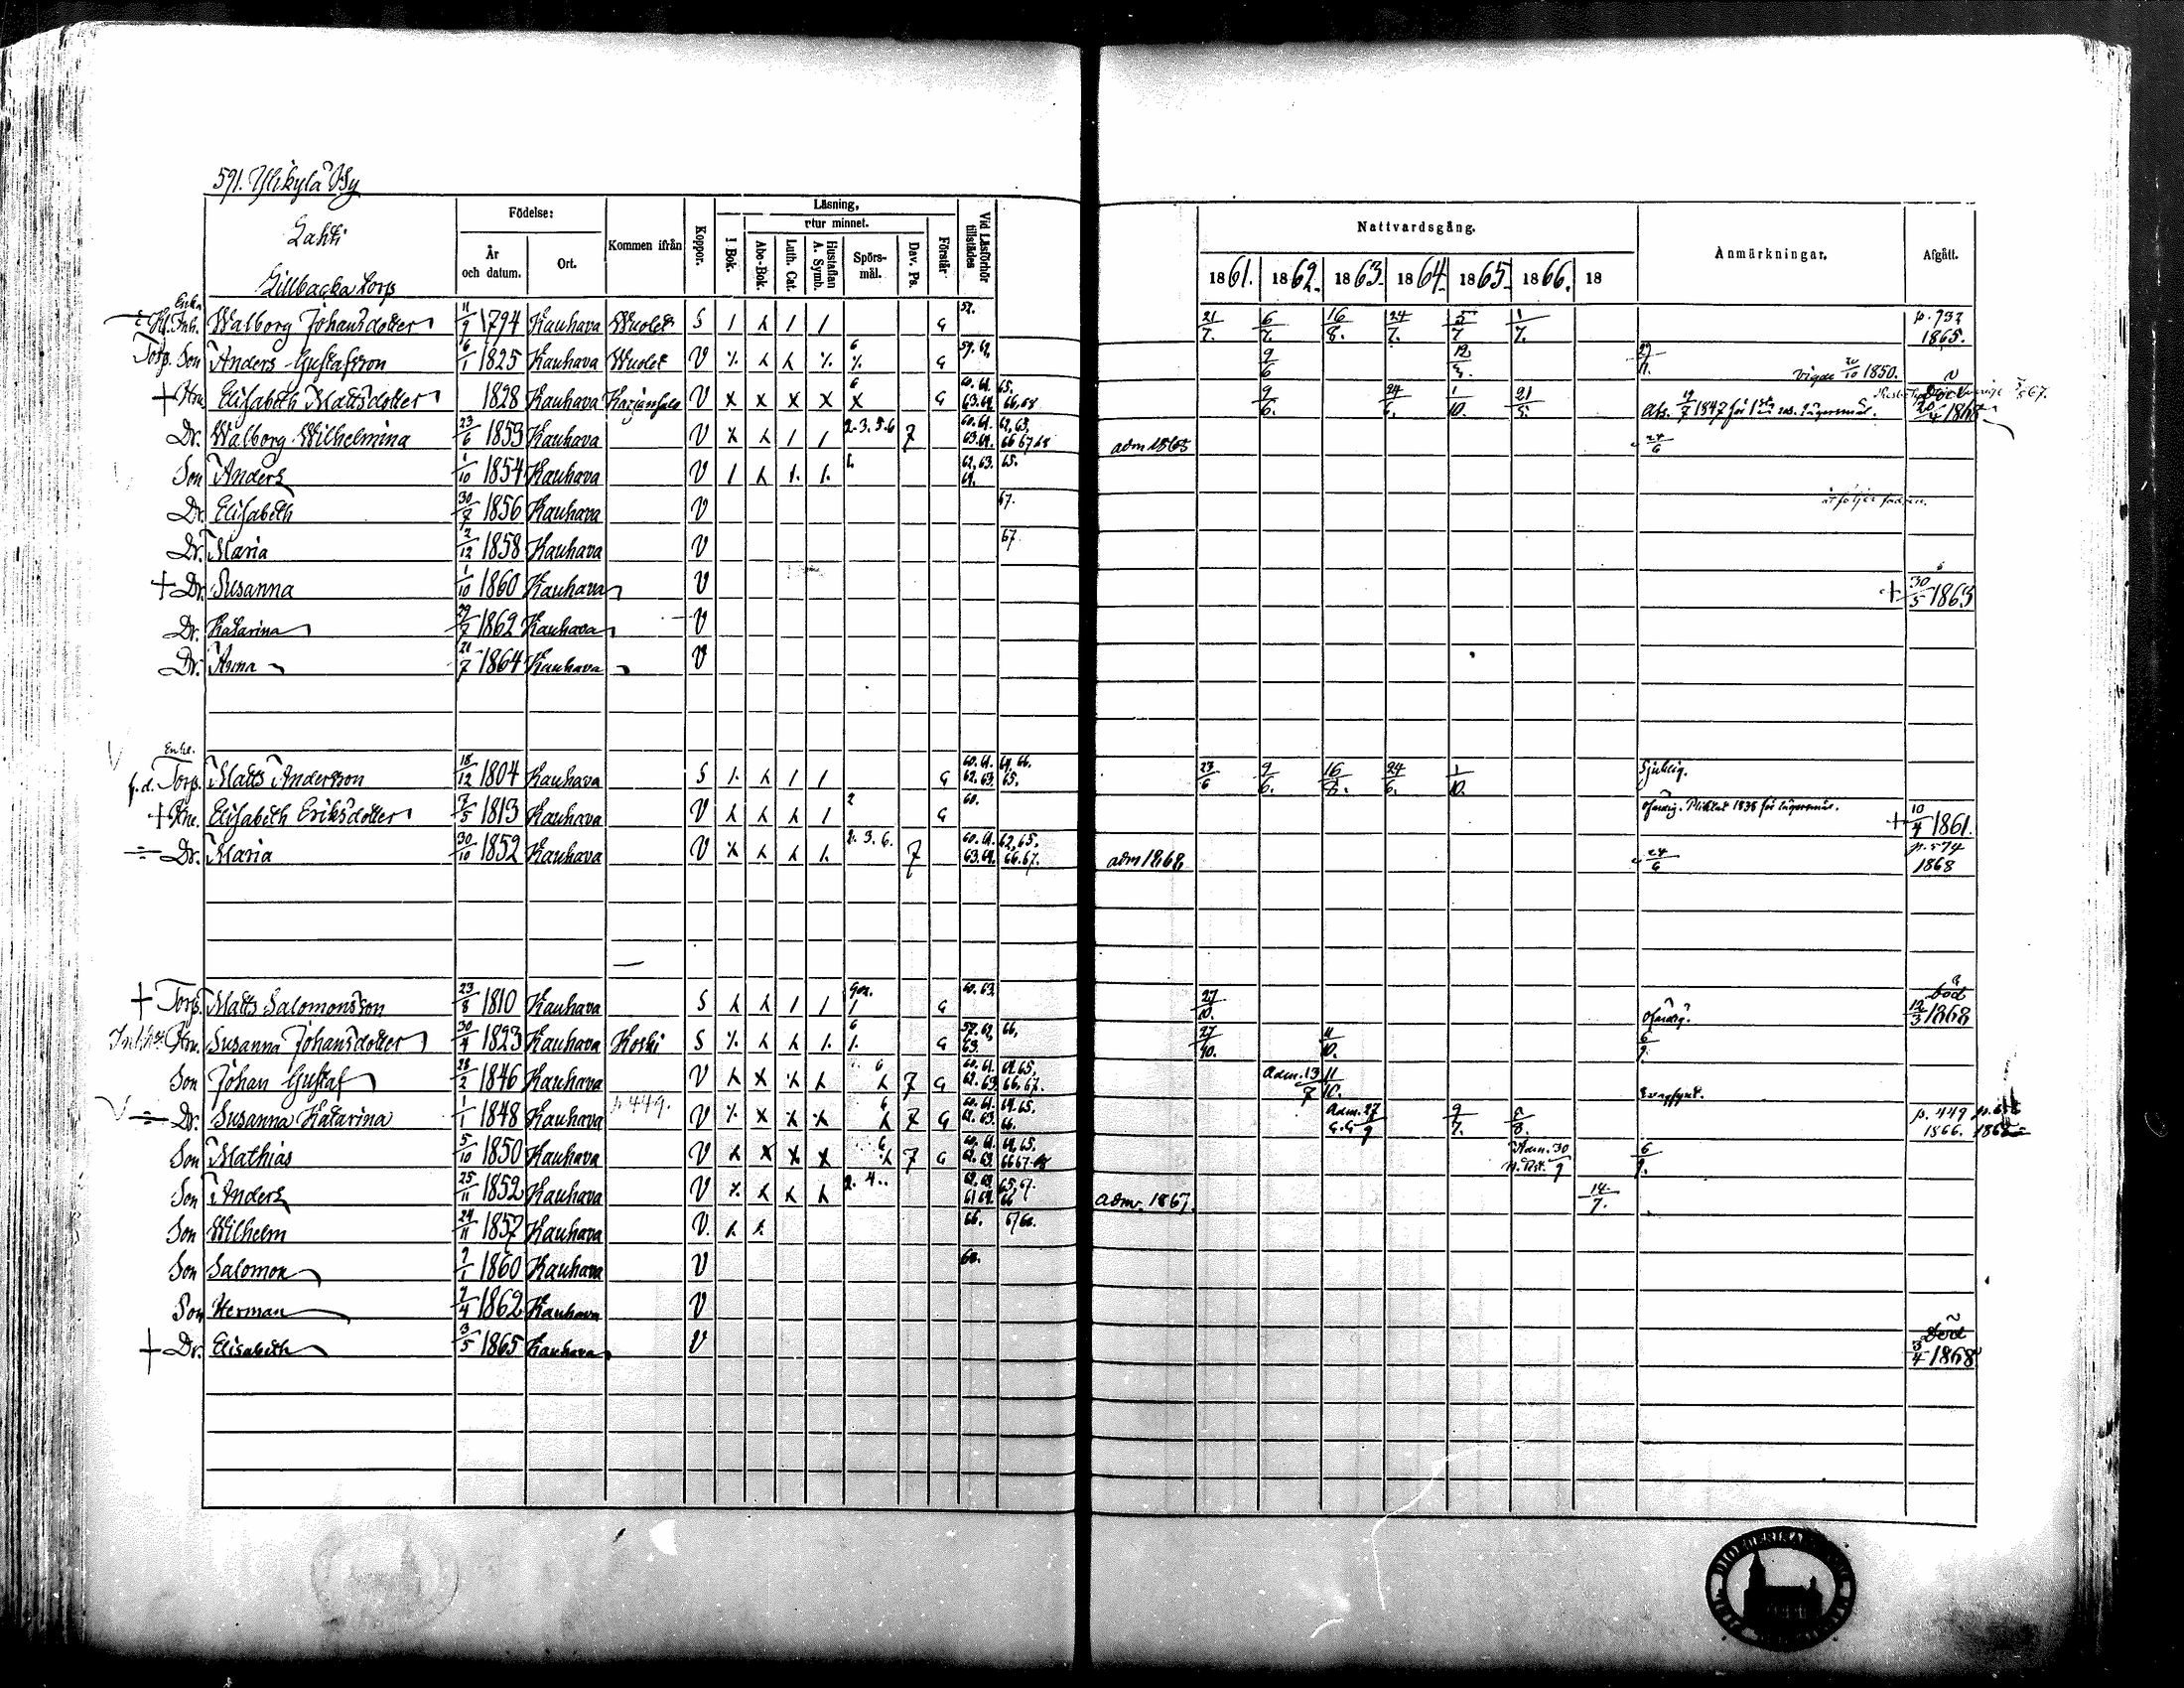 591. Ylikylä By
Lahti
Lillbacka torp
Födelse:
År och datum.
Ort.
Kommen ifrån
Koppor.
Läsning,
utur minnet.
I Bok.
Abc-Bok.
Luth. Cat.
Hustaflan A. Symb.
Spörsmål.
Dav. Ps.
Förstår
Vid Läsförhör tillstädes
Nattvardsgång.
1861. 1862. 1863. 1864. 1865. 1866. 18
Anmärkningar.
Afgått.
Enka Inh. Walborg Johansdotter 11/9 1794 Kauhava Wuolet S 21/7. 6/7. 16/8. 24/7. 5/7 1/7. p. 732 1865.
Torp. Son Anders Gustafsson 16/1 1825 Kauhava Wuolet V 6 G 59. 62. 9/6 vigde 20/10 1850.
+ Hu. Elisabeth Mattsdotter 1828 Kauhava V x x x x x 6 G 60. 61. 65. 63. 64. 66, 68 9/6. 24/6. 1/10. 21/5. Abs. 19/7 1847 för 1sta lägersmål. Död
Dr. Walborg Wilhelmina 23/6 1853 Kauhava V 2. 3. 5. 6 7 60. 61. 62, 63, 63. 64. 66 67 68 adm 1868 24/6
Son Anders 1/10 1854 Kauhava V 62, 63. 65. 64.
Dr. Elisabeth 30/7 1856 Kauhava V 67.
Dr. Maria 2/12 1858 Kauhava V 67.
+ Dr. Susanna 1/10 1860 Kauhava V + 30/5 1863
Dr. Katarina 29/7 1862 Kauhava V
Dr. Anna 21/7 1864 Kauhava V
Enkl. f.d. Torp. Matts Andersson 18/12 1804 Kauhava S G 60. 61. 64, 66. 62. 63. 65. 23/6 9/6. 16/8. 24/6. 1/10. Sjuklig.
+ Hu. Elisabeth Eriksdotter 7/5 1813 Kauhava V 2 G 60. Ofärdig. Pliktat 1838 för lägersmål. + 10/4 1861.
Dr. Maria 30/10 1852 Kauhava V 2. 3. 6. 7 60. 61. 62, 65. 63. 64. 66. 67. adm 1868 24/6 p. 574 1868
+ Torp. Matts Salomonsson 23/8 1810 Kauhava S G 60. 63. 27/10. Ofärdig. Död 12/3 1868
Hu. Susanna Johansdotter 30/4 1823 Kauhava Koski S 6 G 59. 62, 66, 63. 27/10. 11/10. 6/9.
Son Johan Gustaf 28/2 1846 Kauhava V 6 7 G 60. 61. 64. 65. 62. 63. 66, 67. Adm. 13/7 11/10. Svagsynt.
Dr. Susanna Katarina 1/1 1848 Kauhava p. 449. V 6 7 G 60. 61. 64. 65. 62. 63. 66. Adm. 27/9 9/7. p. 449 1866.
Son Mathias 5/10 1850 Kauhava V 6 7 G 60. 61. 64, 65. 62. 63. 66 67 68 Adm. 30/9 6/9.
Son Anders 25/11 1852 Kauhava V 2. 4. adm. 1867. 14/7.
Son Wilhelm 24/11 1857 Kauhava V. 66.
Son Salomon 9/1 1860 Kauhava V
Son Herman 2/4 1862 Kauhava V
+ Dr. Elisabeth 3/5 1865 Kauhava V Död 3/4 1868